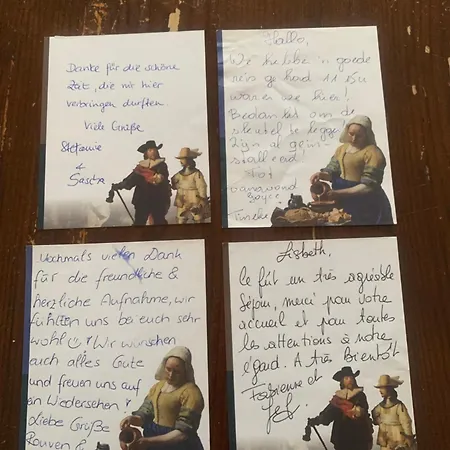 Danke für die schöne
Zeit, die wir hier
verbringen durften
Viele Grüße
Stefanie
&
Sascha
Hallo,
We hebben 'n goede
reis gehad 11.15u
waren we hier!
Bedankt om de
sleutel te leggen
Zijn al geïn-
stalleerd!
Tot
vanavond
Tineke
Nochmals vielen Dank
für die freundliche &
herzliche Aufnahme, wir
fühlten uns bei euch sehr
wohl! Wir wünschen
auch alles Gute
und freuen uns auf
ein Wiedersehen!
Liebe Grüße
Rouven &
Lisbeth,
Ce fût un très agréable
Séjour, merci pour votre
accueil et pour toutes
les attentions à notre
égard. A très Bientôt
Fabienne et